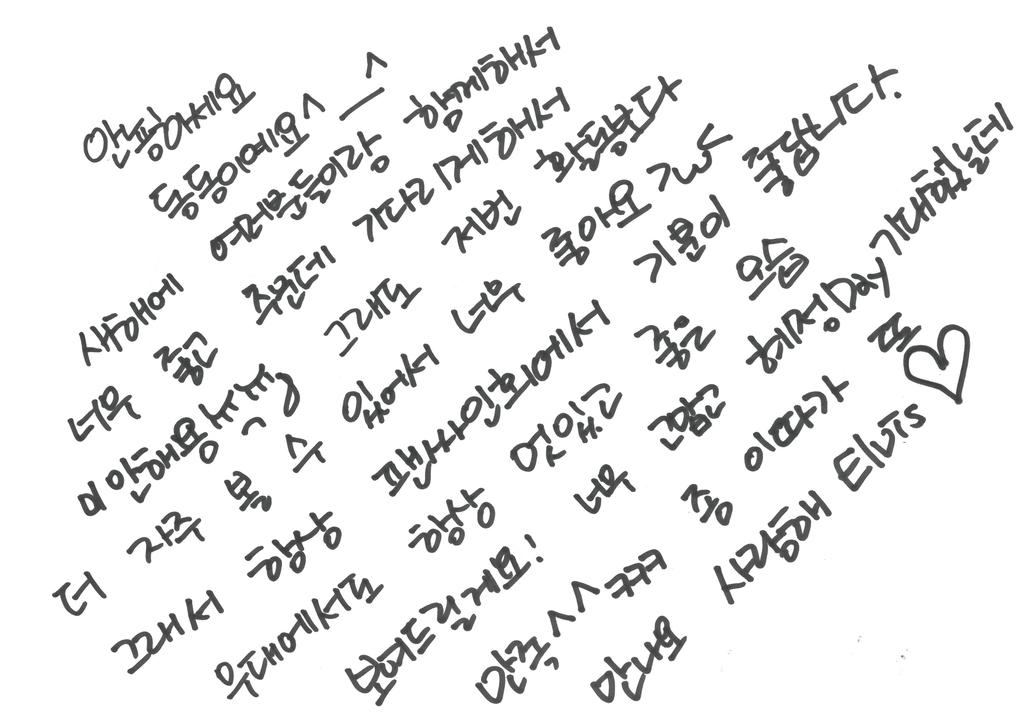 안녕하세요
동동이예요^_^
새해에 여러분들이랑 함께해서
너무 좋고 추운데 기다리게해서
미안해용ㅠㅠ 그래도 저번 활동보다
더 자주 볼 수 있어서 너무 좋아요
그래서 항상 팬사인회에서 기분이 좋답니다.
무대에서도 항상 멋있고 좋은 모습
보여드릴게요! 너무 고맙고 혜정Day 기대했는데
만족^^ ㅋㅋㅋ 좀 이따가 또
만나요 사랑해 Elvis ♡